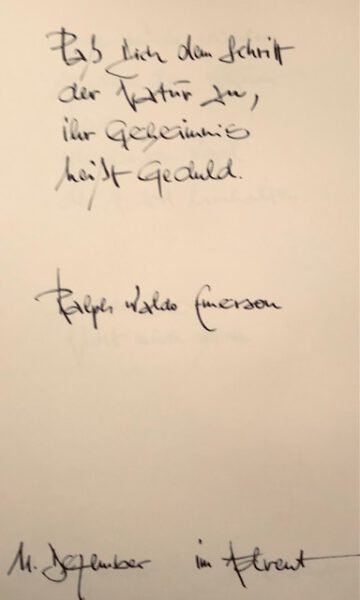 Paß Dich dem Schritt
der Natur an,
ihr Geheimnis
heißt Geduld.
Ralph Waldo Emerson
11. Dezember im Advent